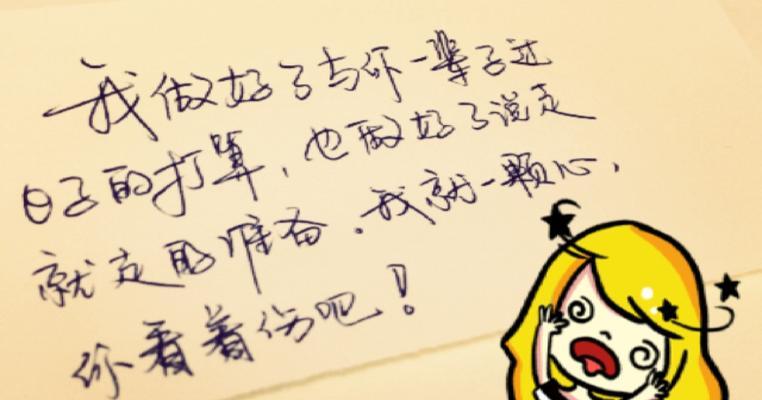 我做好了与你一辈子过
日子的打算，也做好了说走
就走的准备．我就一颗心，
你看着伤吧！